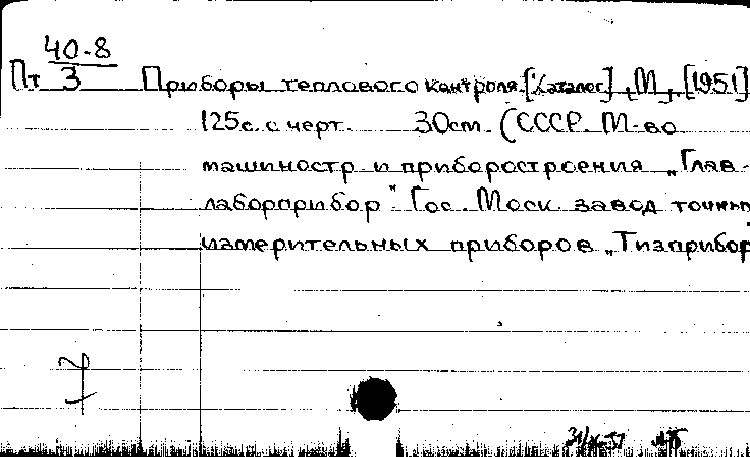 40-8
Пт 3 Приборы теплового контроля. [Каталог]. [М.], [1951]
125с. с черт. 30см. (СССР. М-во
машиностр и приборостроения „Глав-
лаборприбор". Гос. Моск. завод точных
измерительных приборов „Тизприбор